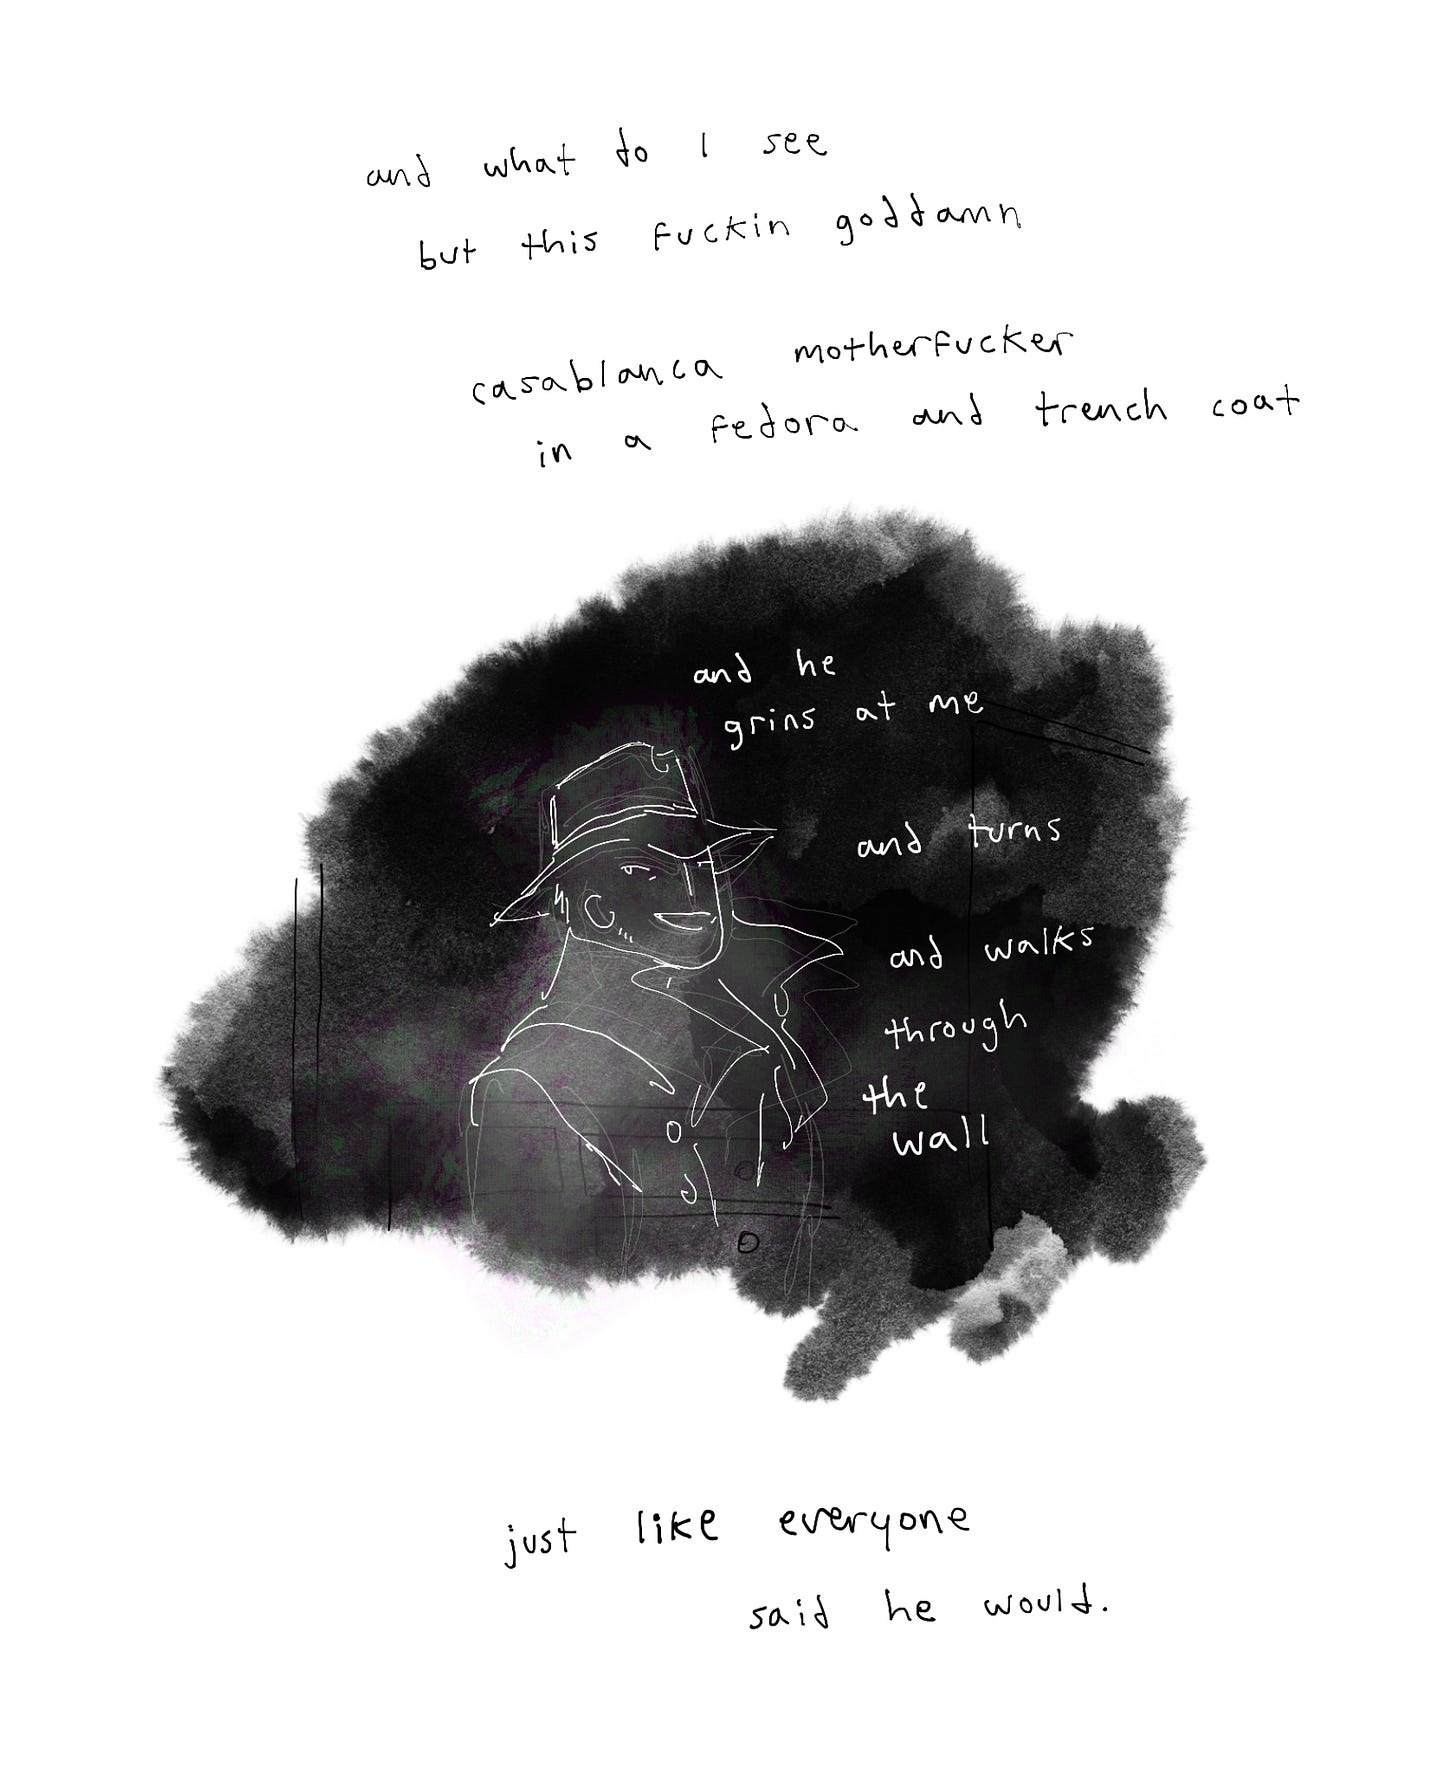 and what do I see
but this fuckin goddamn
casablanca motherfucker
in a fedora and trench coat
and he
grins at me
and turns
and walks
through
the
wall
just like everyone
said he would.